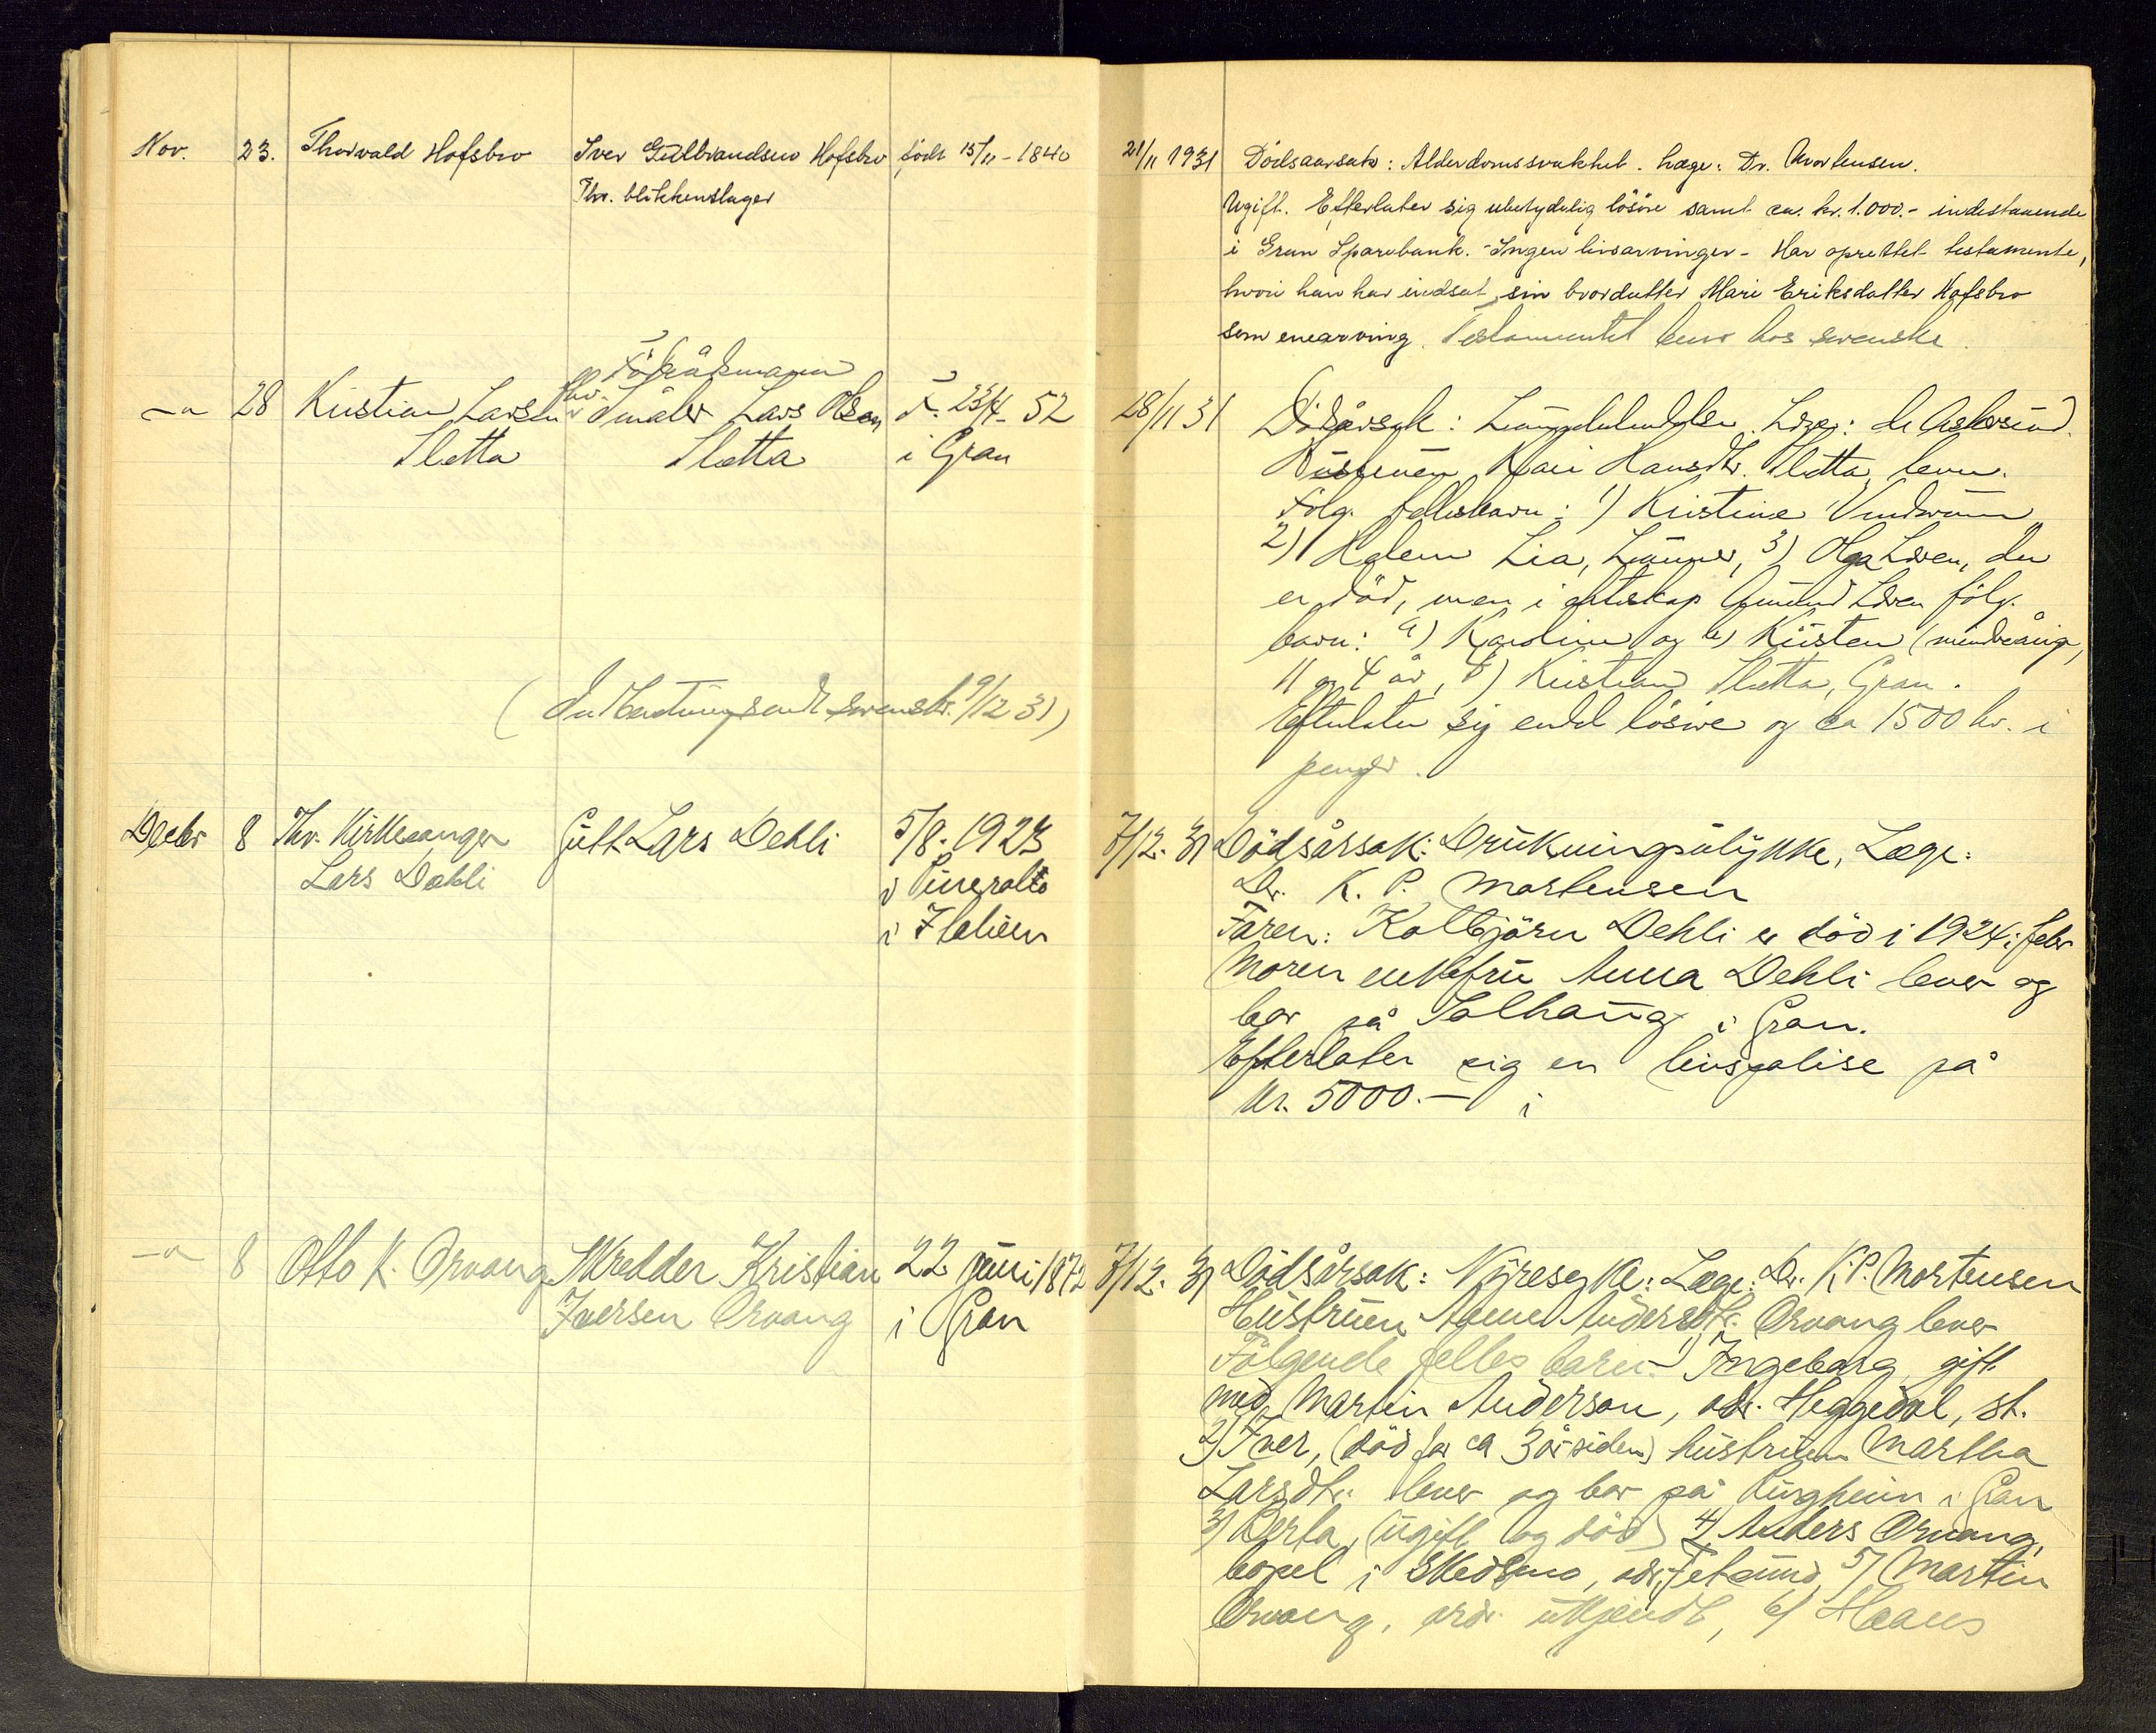 Nov. 23. Thorvald Hofsbro Iver Gulbrandsen Hofsbro født 15/11 - 1840 21/11 1931 Dødsaarsak: Alderdomssvakhet. Læge: Dr. Mortensen.
Fhv. blikkenslager Ugift. Efterlater sig ubetydelig løsøre samt ca. kr. 1.000.- indestaaende
i Gran Sparebank. - Ingen livsarvinger - Har oprettet testamente,
hvori han har indsat sin brordatter Mari Eriksdatter Hofsbro
som enearving. Testamentet bero hos svenske.
Föderådsmann
-"- 28 Kristian Larsen Lars Olsen f. 23/4 - 52 28/11 31 Dödsårsak: Lungebetendelse. Læge: de Besche
Sletta Sletta i Gran Hustruen Kari Hansdtr. Sletta lever.
Følg. fellesbarn: 1) Kristine
2) Helene Lia, Lunner, 3) Olga, den
er död, men i ekteskap følg.
barn: a) Karoline og b) Kirsten (mindreårig,
11 og 4 år, 4) Kristian Sletta, Gran.
( sendt svensk. 9/12 31) Efterlater sig endel løsøre og ca 1500 kr. i
penger.
Decbr 8 Fhv. Kirkesanger Gutt Lars Dehli 5/8. 1923 7/12. 31 Dödsårsak: Drukningsulykke, Læge:
Lars Dehli i Dr. K. P. Mortensen
i Italien Faren: Kolbjörn Dehli er död i 1924 i febr
Moren enkefru Anna Dehli lever og
bor på Solhaug i Gran.
Efterlater sig en livspolise på
Kr. 5000.- i
-"- 8 Otto K. Orvang Skredder Kristian 22. juni 1872 7/12. 31 Dödsårsak: Nyresyke: Læge: Dr. K.P. Mortensen
Iversen Orvang i Gran Hustruen Anne Andersdtr. Orvang lever
Fölgende felles barn: 1) Ingeborg gift
med Martin Anderson, adr. Heggedal, st.
2) Iver, (död for ca 3 år siden) hustruen Martha
Larsdtr. lever og bor på Ringheim i Gran
3) Berta, (ugift og död) 4) Anders Orvang,
bopel i Skedsmo, adr. Fetsund, 5) Martin
Orvang, adr. ukjendt, 6) Haans